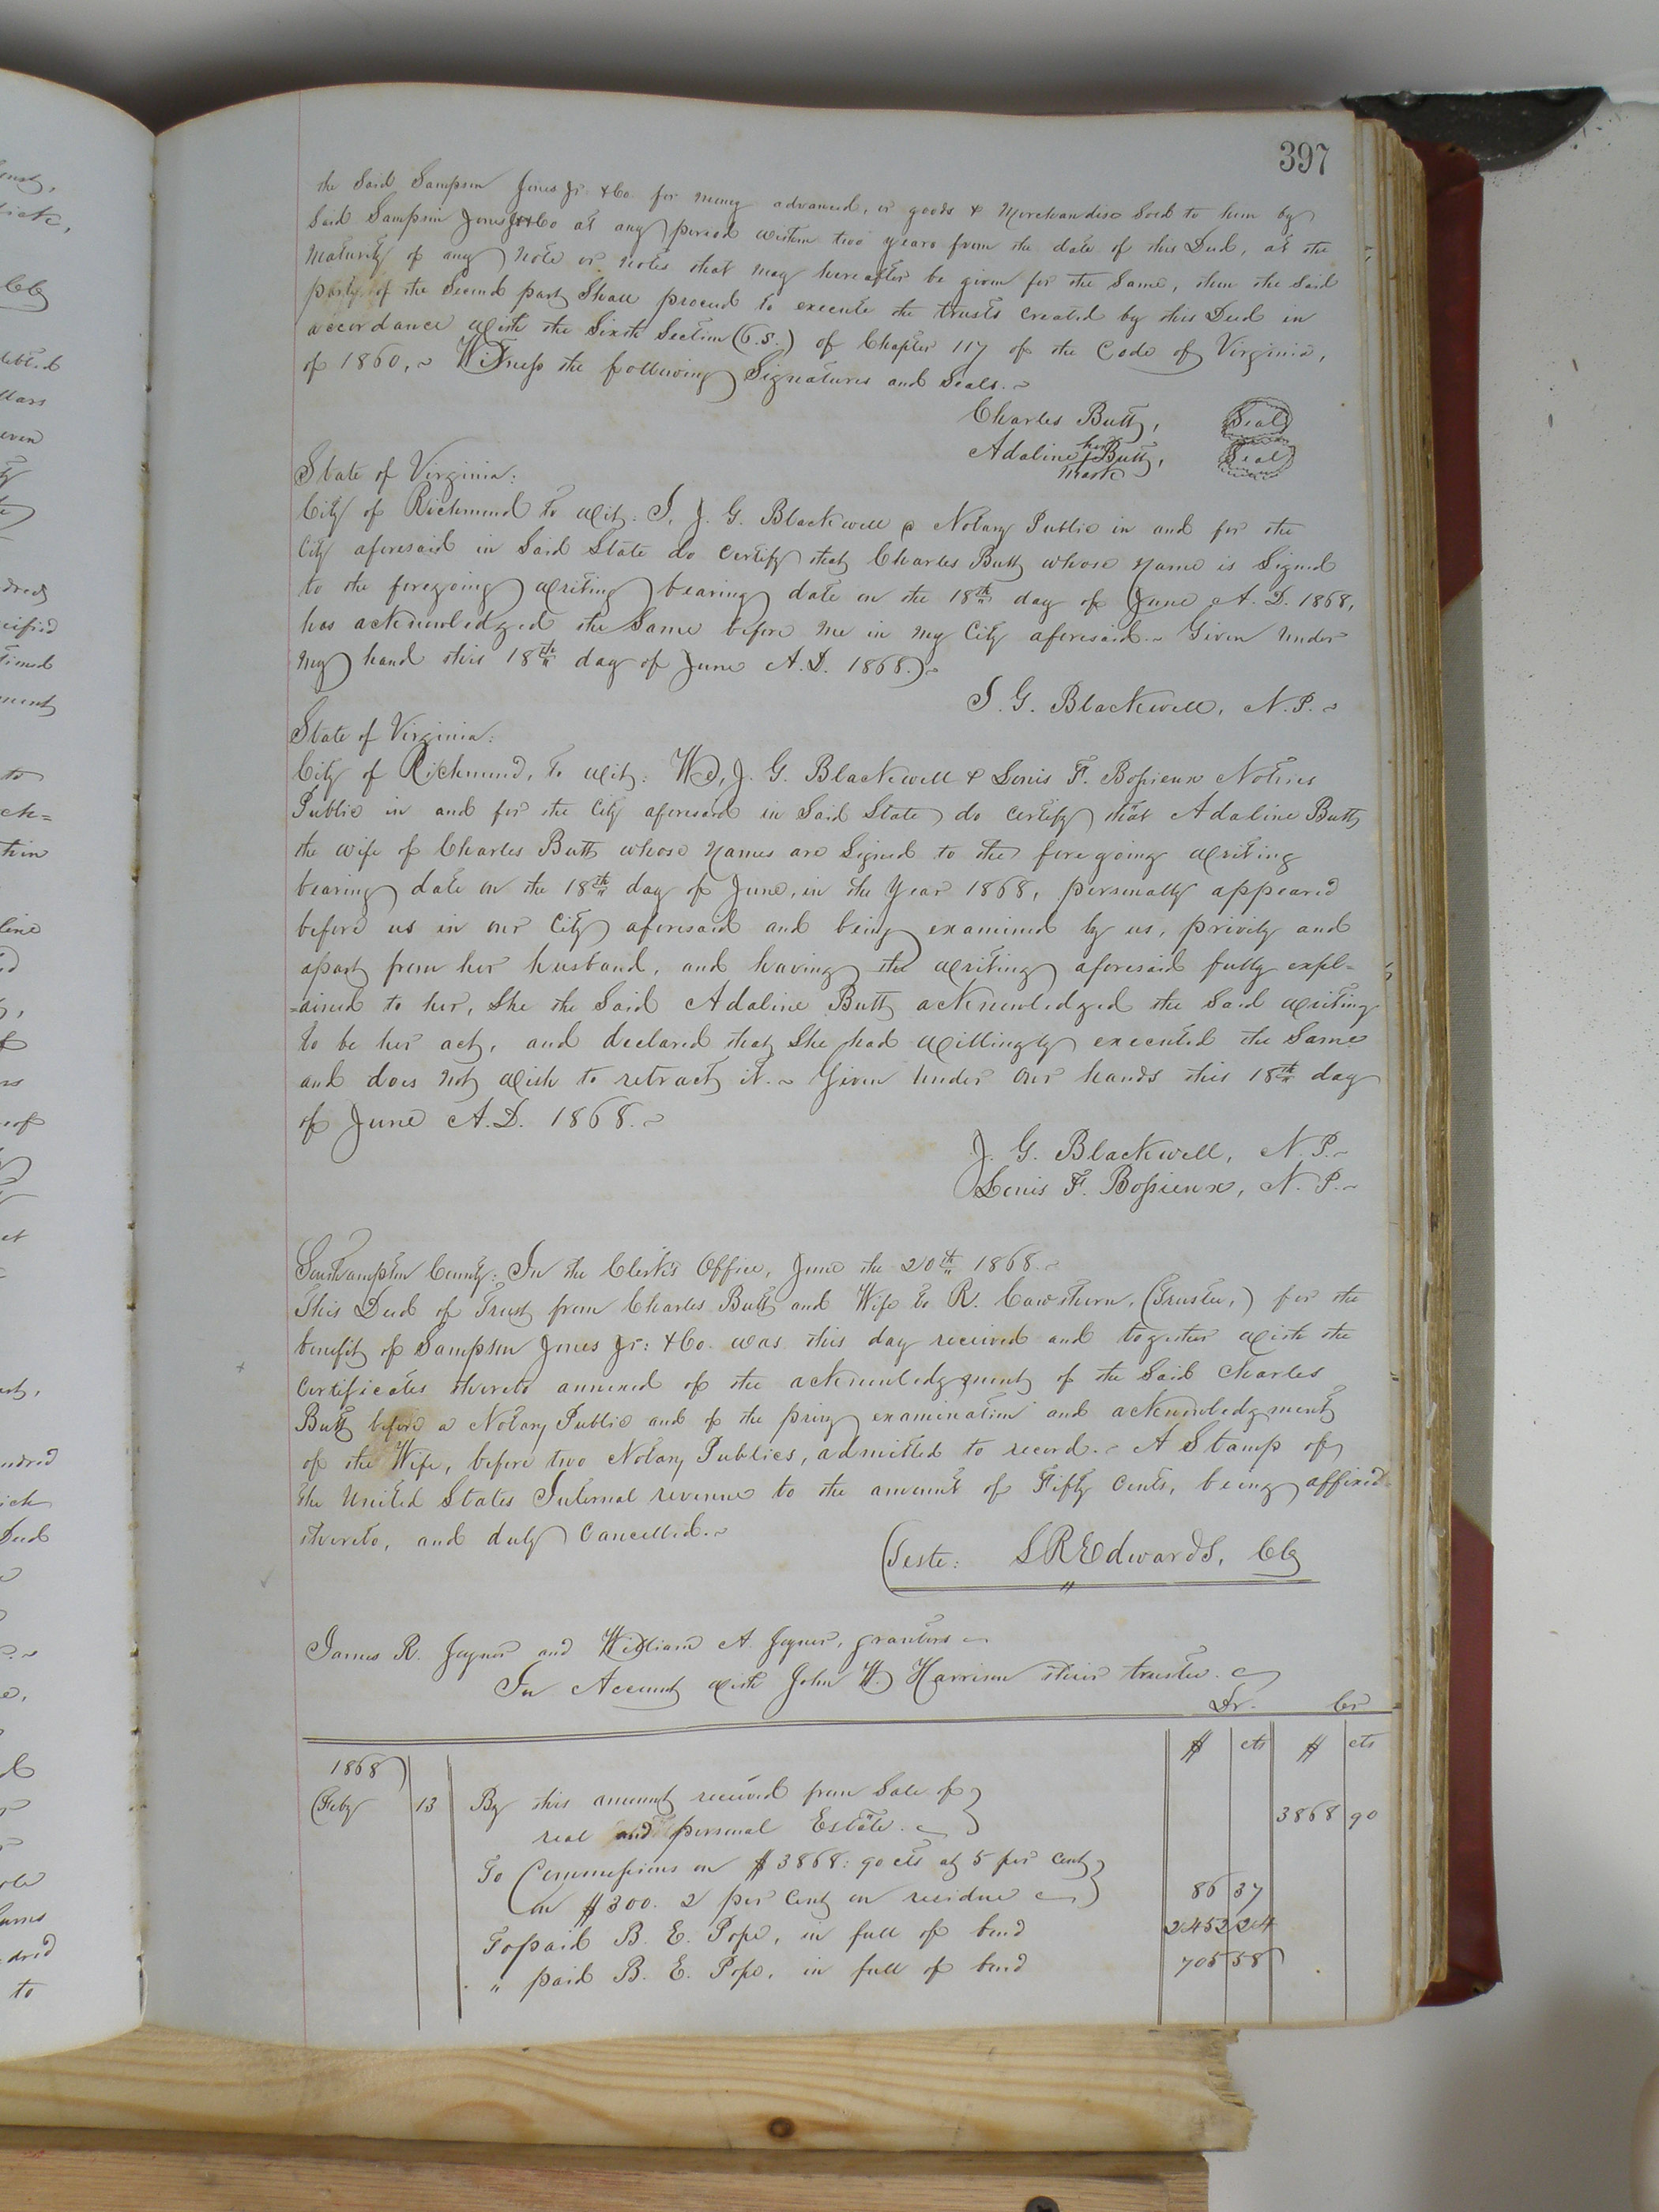 397
the Said Sampson Jones Jr. & Co. for money advanced, or goods & Merchandise Sold to him by
Said Sampson Jones Jr & Co at any period within two years from the date of this Deed, at the
Maturity of any Note or notes that may hereafter be given for the Same, then the said
party of the Second part Shall proceed to execute the trusts created by this Deed in
accordance with the Sixth Section (6.S.) of Chapter 117 of the Code of Virginia,
of 1860, ~ Witness the following Signatures and Seals. ~
Charles Butt, Seal
her
Adaline + Butt, Seal
mark
State of Virginia:
City of Richmond to wit: I, J. G. Blackwell a Notary Public in and for the
City aforesaid in Said State do certify that Charles Butt whose name is Signed
to the foregoing writing bearing date on the 18th day of June A. D. 1868,
has acknowledged the Same before me in my City aforesaid. ~ Given under
my hand this 18th day of June A.D. 1868. ~
J. G. Blackwell, N.P. ~
State of Virginia:
City of Richmond, to wit: We, J. G. Blackwell & Louis F. Bossieux Notries
Public in and for the City aforesaid in Said State do certify that Adaline Butt
the wife of Charles Butt whose names are Signed to the foregoing writing
bearing date on the 18th day of June, in the Year 1868, personally appeared
before us in our City aforesaid and being examined by us, privity and
apart from her husband, and having the writing aforesaid fully expl=
=ained to her, She the Said Adaline Butt acknowledged the Said writing
to be her act, and declared that She had willingly executed the Same
and does not wish to retract it. ~ Given under our hands this 18th day
of June A.D. 1868. ~
J. G. Blackwell, N. P. ~
Louis F. Bossieux, N. P. ~
Southampton County: In the Clerk's Office, June the 20th 1868. ~
This Deed of Trust from Charles Butt and Wife to R. Cawthorn, (Trustee,) for the
benefit of Sampson Jones Jr: & Co. was this day received and together with the
Certificates thereto annexed of the acknowledgment of the Said Charles
Butt before a Notary Public and of the privy examination and acknowledgment
of the Wife, before two Notary Publics, admitted to record. ~ A Stamp of
the United States Internal revenue to the amount of Fifty Cents, being affixed
thereto, and duly Cancelled. ~
Teste: L R Edwards, CC
James R. Joyner and William A. Joyner, grantors
In Account with John W. Harrison their trustee.
Dr. Cr
$ cts $ cts
1868
Feby 13 By this amount received from Sale of
real and personal Estate. 3868 90
To Commissions on $3868: 90 cts at 5 per cent
on $300. 2 per cent on residue 86 37
To paid B. E. Pope, in full of bond 2452 24
" paid B. E. Pope, in full of bond 705 58